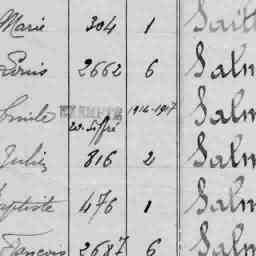 Marie 304 1 Sait
Louis 2662 6 Salm
Emile EXEMPTÉ 1916-1917 Salm
Julien 816 2 Salm
Baptiste 476 1 Salm
François 2687 6 Salm